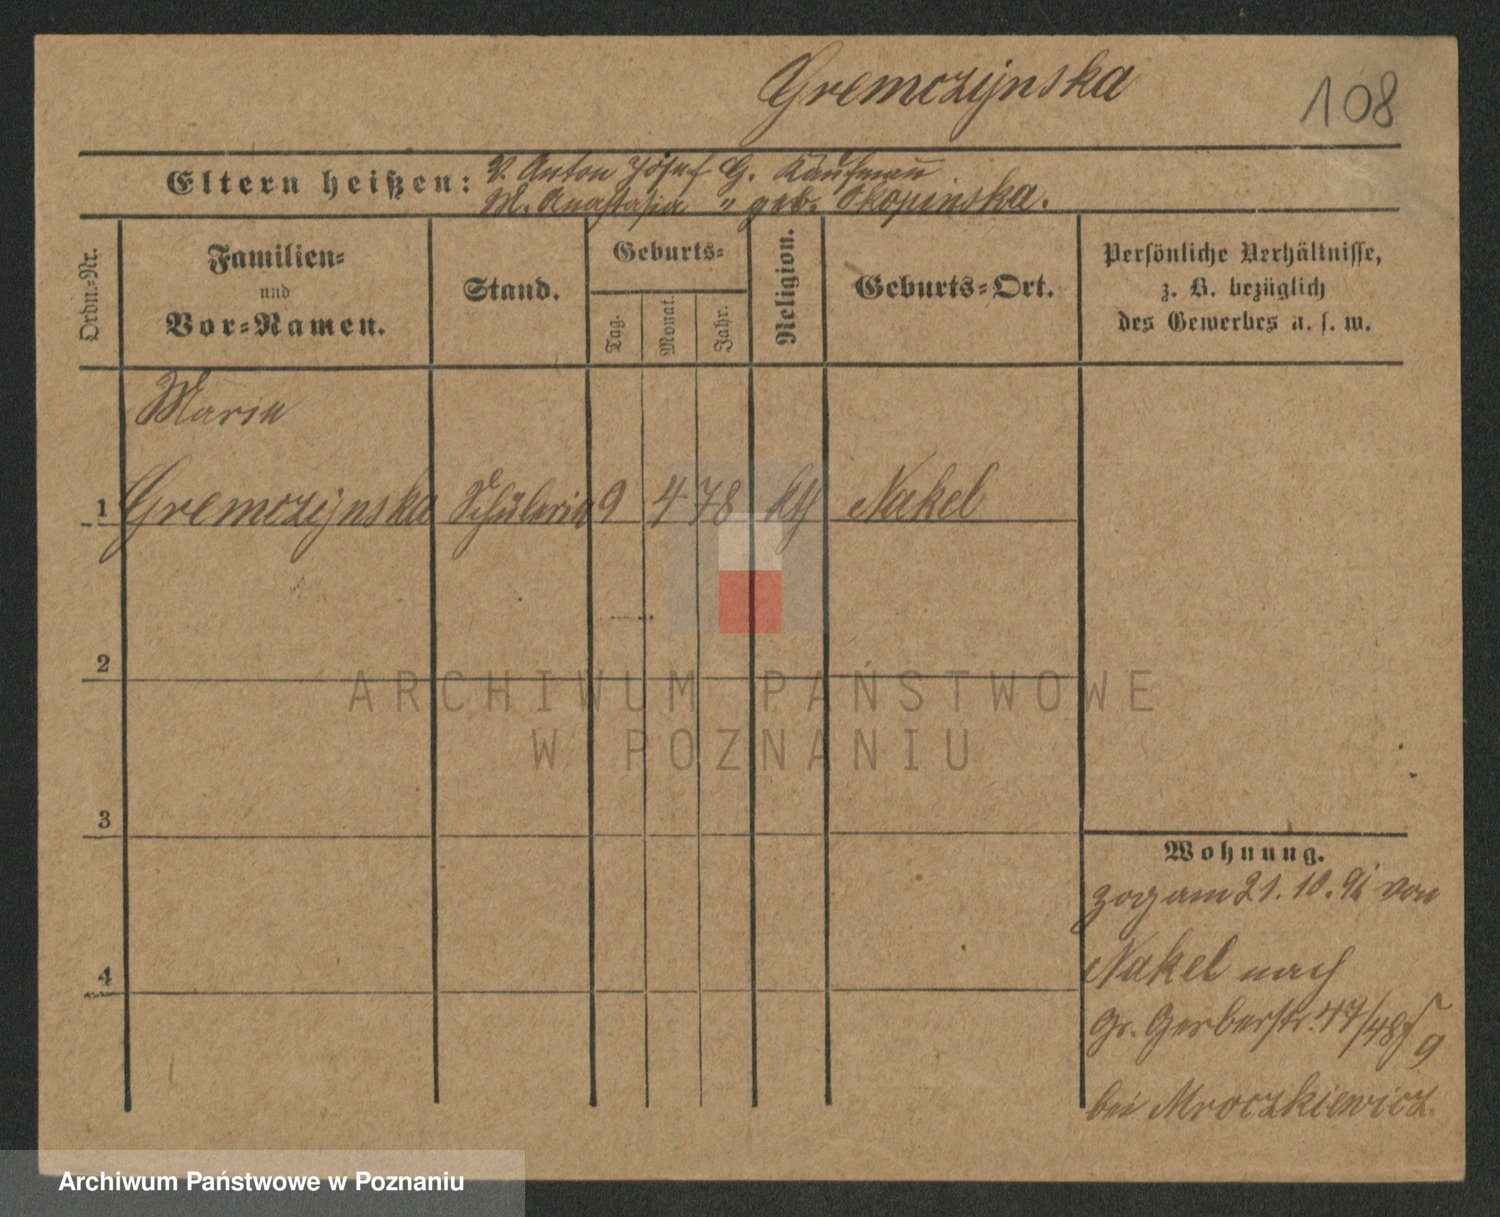 Gremczijnska
108
Eltern heißen:
V. Anton Josef G. Kaufmann
M. Anastasia " geb. Okopinska.
Ordn.-Nr.
Familien-
und
Vor-Namen.
Stand.
Geburts-
Tag.
Monat.
Jahr.
Religion.
Geburts-Ort.
Persönliche Verhältnisse,
z. B. bezüglich
des Gewerbes u. s. w.
Marie
1 Gremczijnska Schülerin 9 4 78 kth Nakel
2
3
4
Wohnung.
zog am 21. 10. 91 von
Nakel nach
Gr. Gerberstr. 47/48
bei Mroczkiewicz.
ARCHIWUM PAŃSTWOWE
W POZNANIU
Archiwum Państwowe w Poznaniu